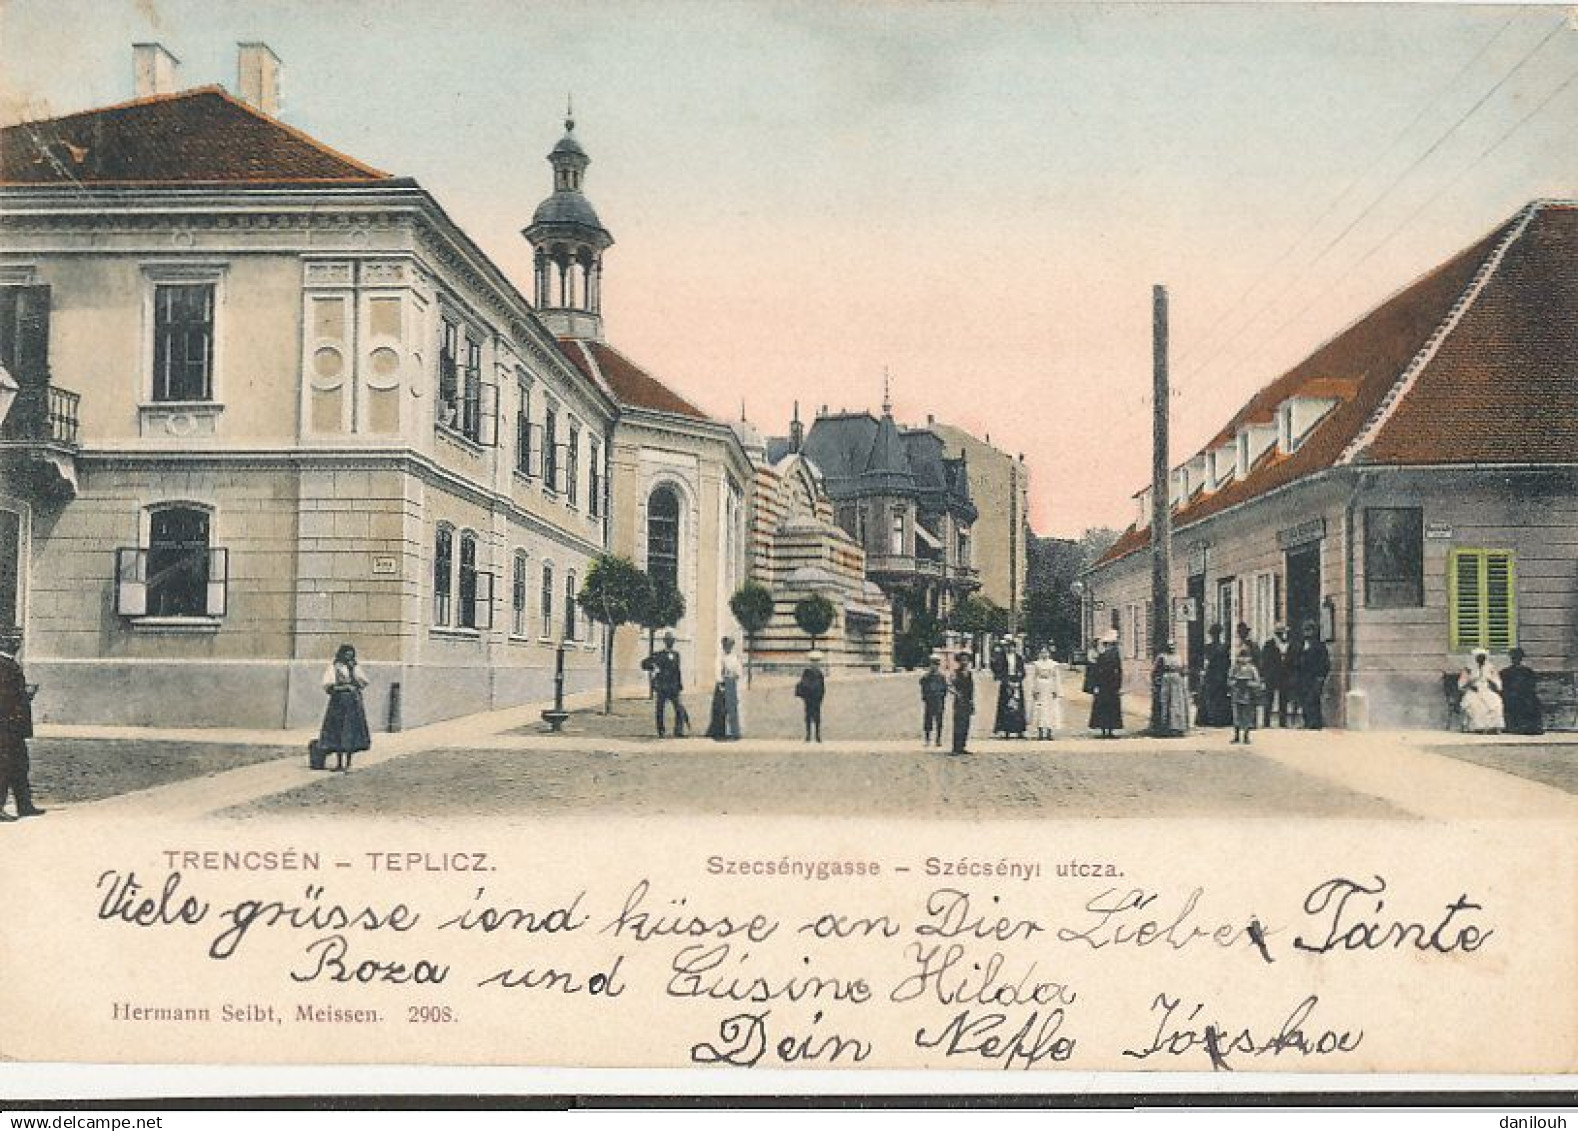 TRENCSÉN – TEPLICZ.
Szecsénygasse – Szécsényi utcza.
Viele grüsse iend küsse an Dier Lieber Tánte
Roza und Cúsine Hilda
Hermann Seibt, Meissen. 2908.
Dein Neffe Józska
www.delcampe.net
danilouh